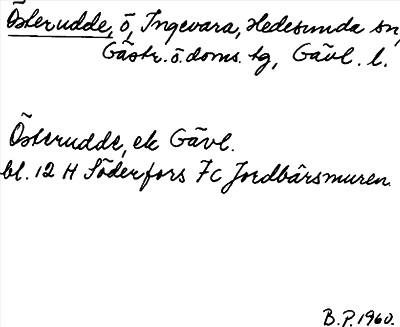 Österudde, ö, Ingevara, Hedesunda sn,
Gästr. ö. doms. tg, Gävl. l.
Österudde, ek Gävl.
bl. 12 H Söderfors 7c Jordbärsmuren.
B.P. 1960.